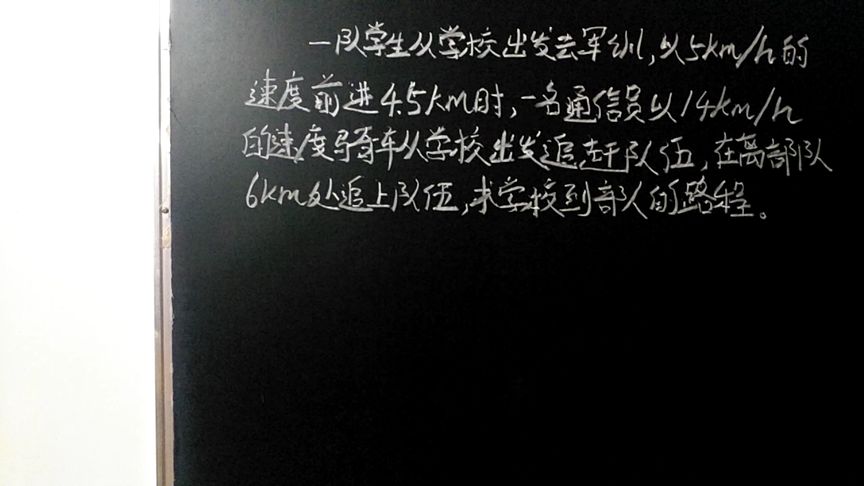 一队学生从学校出发去军训,以5km/h的
速度前进4.5km时,一名通信员以14km/h
的速度骑车从学校出发追赶队伍,在离部队
6km处追上队伍,求学校到部队的路程。